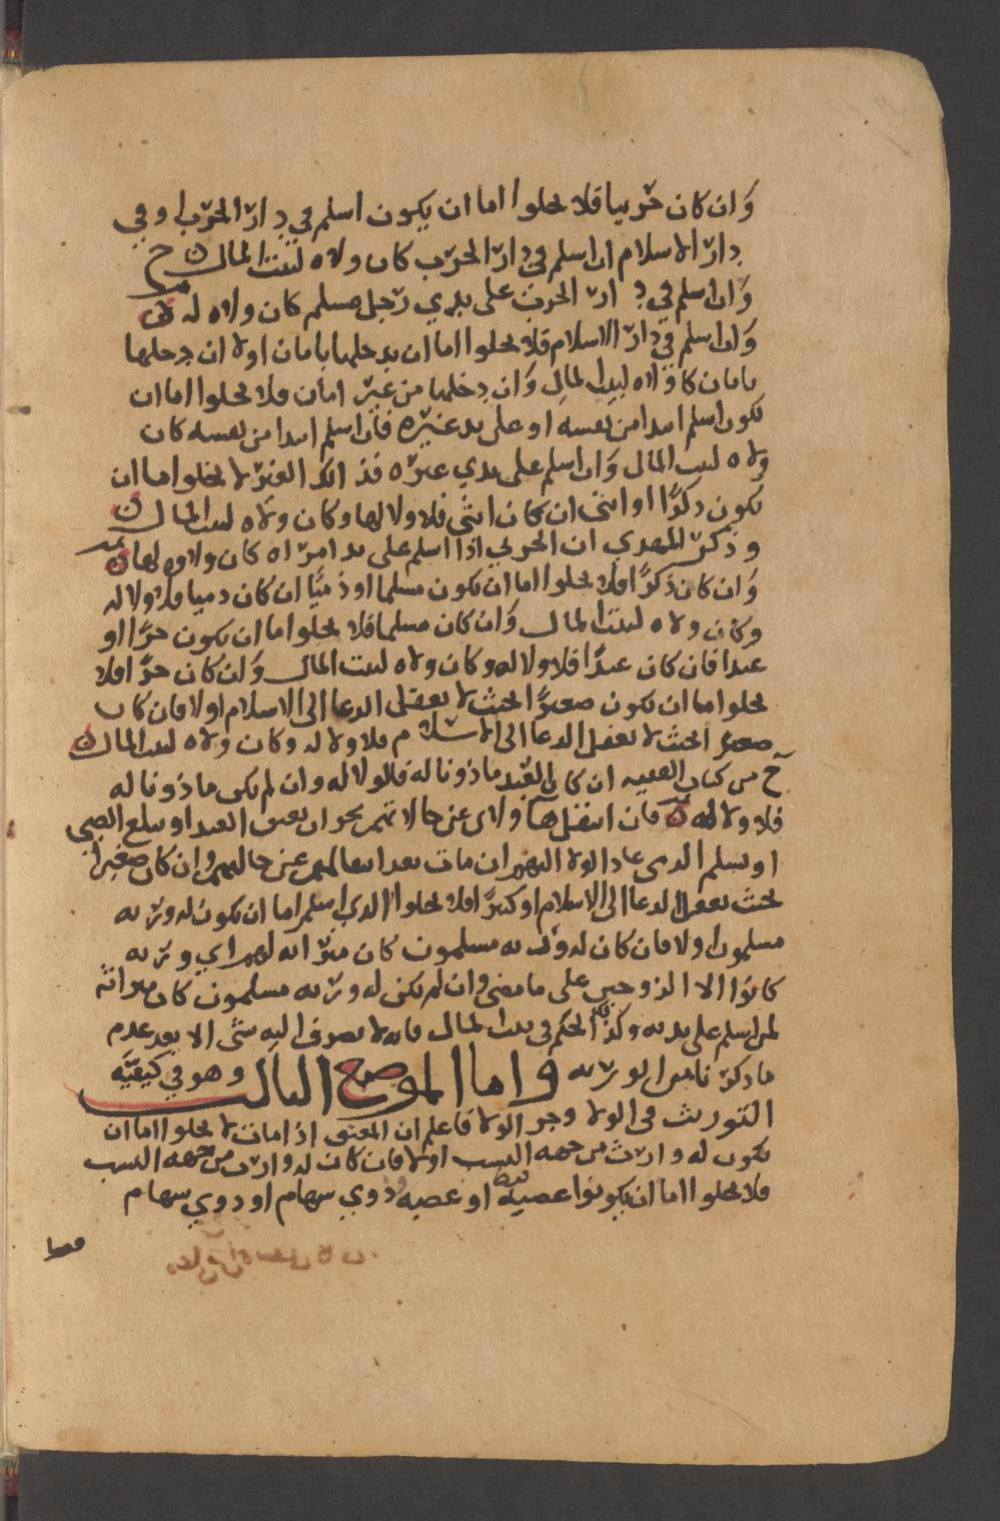 وان كان حربيا فلا يخلوا اما ان يكون اسلم في دار الحرب او في
دار الاسلام ان اسلم في دار الحرب كان ولاه لبيت المال ح
وان اسلم في دار الحرب على يدي رجل مسلم كان ولاه له
وان اسلم في دار الاسلام فلا يخلوا اما ان يدخلها بامان اولا ان دخلها
بامان كان ولاه لبيت المال وان دخلها من غير امان فلا يخلوا اما ان
يكون اسلم ابتدا من نفسه او على يد غيره فان اسلم ابتدا من نفسه كان
ولاه لبيت المال وان اسلم على يدي غيره فذالك الغير لا يخلوا اما ان
يكون ذكرا او انثى ان كان انثى فلا ولا لها وكان ولاه لبيت المال
وذكر المهدي ان الحربي اذا اسلم على يد امراه كان ولاوه لها
وان كان ذكرا فلا يخلوا اما ان يكون مسلما او ذميا ان كان ذميا فلا ولا له
وكان ولاه لبيت المال وان كان مسلما فلا يخلوا اما ان يكون حرا او
عبدا فان كان عبدا فلا ولا له وكان ولاه لبيت المال وان كان حرا فلا
يخلوا اما ان يكون صغيرا بحيث لا يعقل الدعا الى الاسلام اولا فان كان
صغيرا بحيث لا يعقل الدعا الى الاسلام فلا ولا له وكان ولاه لبيت المال
ح من كتاب ان كان العبد ماذونا له فالولا له وان لم يكن ماذونا له
فلا ولا له فان انتقل هاولاى عن حالاتهم نحو ان يعتق العبد او يبلغ الصبي
او يسلم الذمي عاد الولا اليهم ان مات بعد انتقالهم عن حالهم وان كان صغيرا
بحيث يعقل الدعا الى الاسلام او كبيرا فلا يخلوا الذي اسلم اما ان يكون له ورثه
مسلمون اولا فان كان له ورثه مسلمون كان ميراثه لهم اي ورثه
كانوا الا الزوجين على ما مضى وان لم يكن له ورثه مسلمون كان ميراثه
لمن اسلم على يديه وكذا الحكم في بيت المال فانه لا يصرف اليه شى الا بعد عدم
ما ذكرنا من الورثه واما الموضع الثالث وهو في كيفيه
التوريث في الولا وجر الولا فاعلم ان المعتق اذا مات لا يخلوا اما ان
يكون له وارث من جهه النسب اولا فان كان له وارث من جهه النسب
فلا يخلوا اما ان يكونوا عصبه فقط او عصبه وذوي سهام او ذوي سهام
فقط